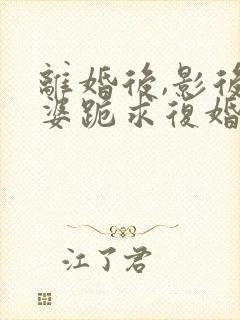 離婚後,影後
婆跪求復婚
江了君